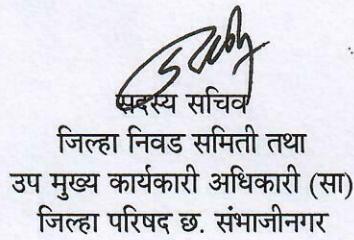 सदस्य सचिव
जिल्हा निवड समिती तथा
उप मुख्य कार्यकारी अधिकारी (सा)
जिल्हा परिषद छ. संभाजीनगर